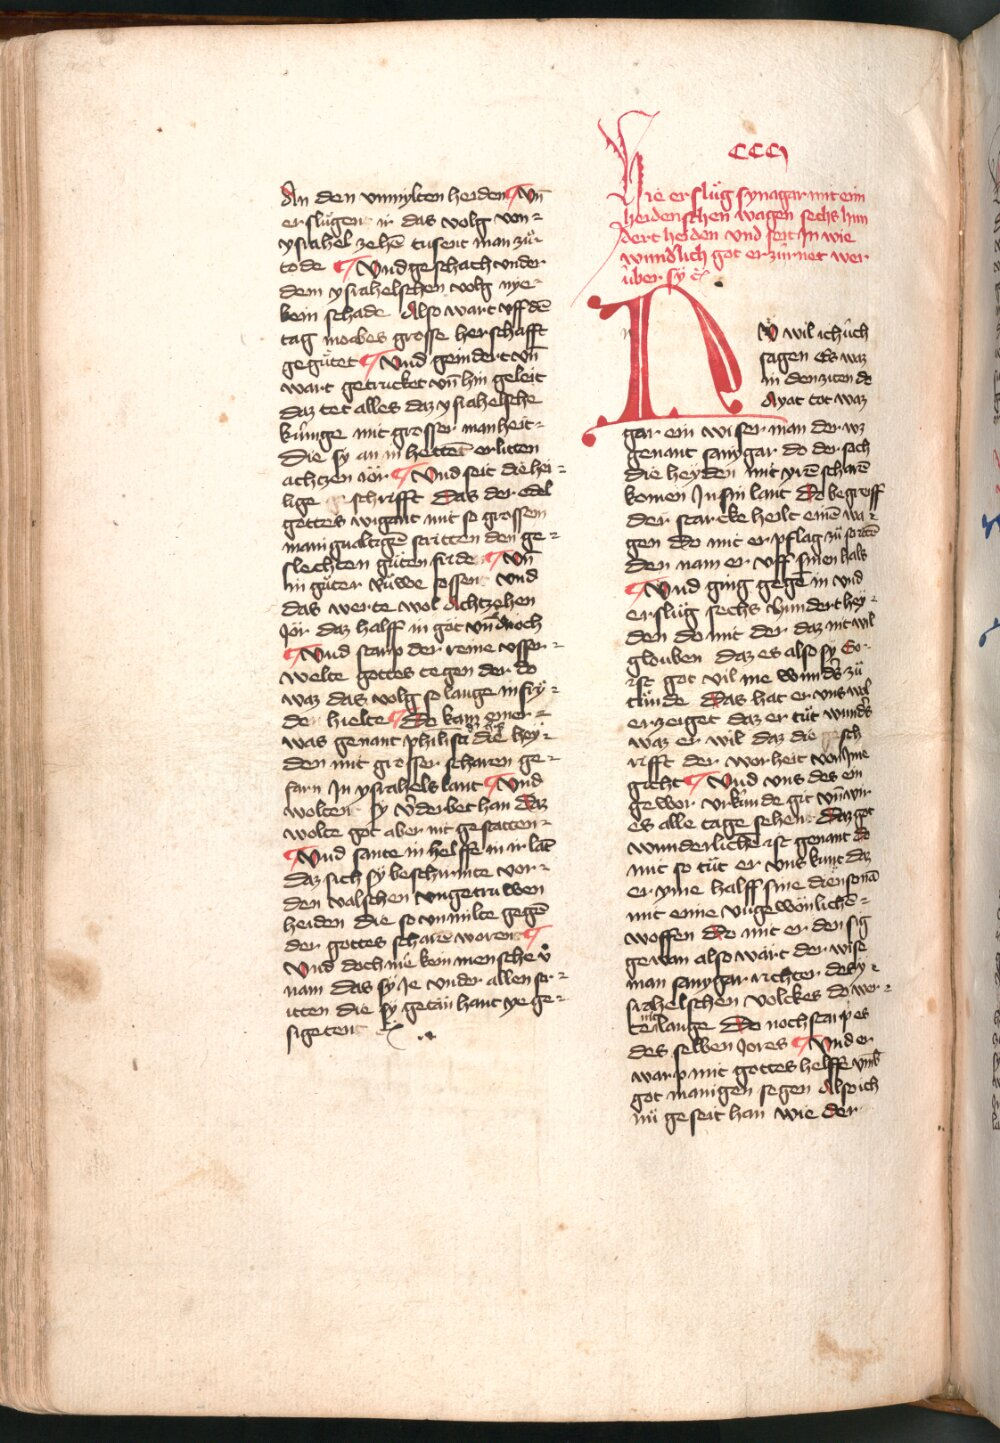 An den vnmylten heiden Vn̄
erslůgen ir das volg von
ysrahel zehē tusent man zůr
tode Vnd geschach vnder
dem ysrahelschen volg nye-
kein schade Also wart vff dē
tag moabes grosse herschafft
gegůtet Vnd geindert vn̄
wart getrucket vn̄ hin geleit
daz tet alles daz ysrahelsche
kůnige mit grosser manheit-
die sy an in hettēt erlitten
achtzen ior Vnd seit die hei-
lige schrifft das der edel
gottes wigant mit so grossem
manigualtigē stritten den ge-
slechten gůten fride Vn̄
in gůter růwe sossen vnd
das werte wol Achtzehen
Jor daz halff in got vn̄ dnoch
Vnd starp der reine vsser-
welte gottes tegen der do
waz das volg so lange in fry-
de hielte Do kam einer-
was genant philisti die hey-
den mit grosser scharen ge-
farn Jn ysrahels lant Vnd
wolten sy v̓derbet han daz
wolte got aber nit gestatten-
Vnd sante in helffe in ir lāt
daz sich sy beschirmte vor-
den valschen vngetruwen
heiden die so vnmilte gegē
der gottes scharē woren
Vnd doch nie kein mensche v̓
nam das sy Je vnder allen str-
itten die sy getan hant ye ge-
sigeten
CCCJ
Hie erslůg synagar mit eim
heidenschen wagen sechs hun
dert heiden vnd seit Jn wie
wundlich got erzůrnet wer
ůber sy
NV wil ich ůch
sagen Es waz
in den ziten do
Ayat tot waz
gar ein wiser man der wz
genant samgar do der sach
die heyden mit yrē scharē
komen Jn sin lant Do begreiff
der starcke heilt einē wa-
gen do mit er pflag
den nam er vff sinen hals
Vnd ging gegē in vnd
erslůg sechs hundert hey-
den do mit der daz nit wil
glouben daz es also sy Do-
ist got vil me wund̓s zů
tůnde Das hat er vns wol
erzeiget daz er tůt wund̓s
waz er wil daz die gesch
rifft der worheit von Jme
gicht Vnd vns des ein
gewor vrkůnde git vn̄ wir
es alle tage sehen Daz got
wunderlichē ist genant do
mit so tůt er vns kunt daz
er yme halff sine
mit eime vngewönlichē-
woffen Do mit er den sig
gewan also wart der wise
man samgar richter des y-
srahelschen volckes do wer-
te nit lange Do noch starp es
des selben Jores Vnd er
warp mit gottes helffe vmb
got manigen segen Also ich
nů geseit han wie der